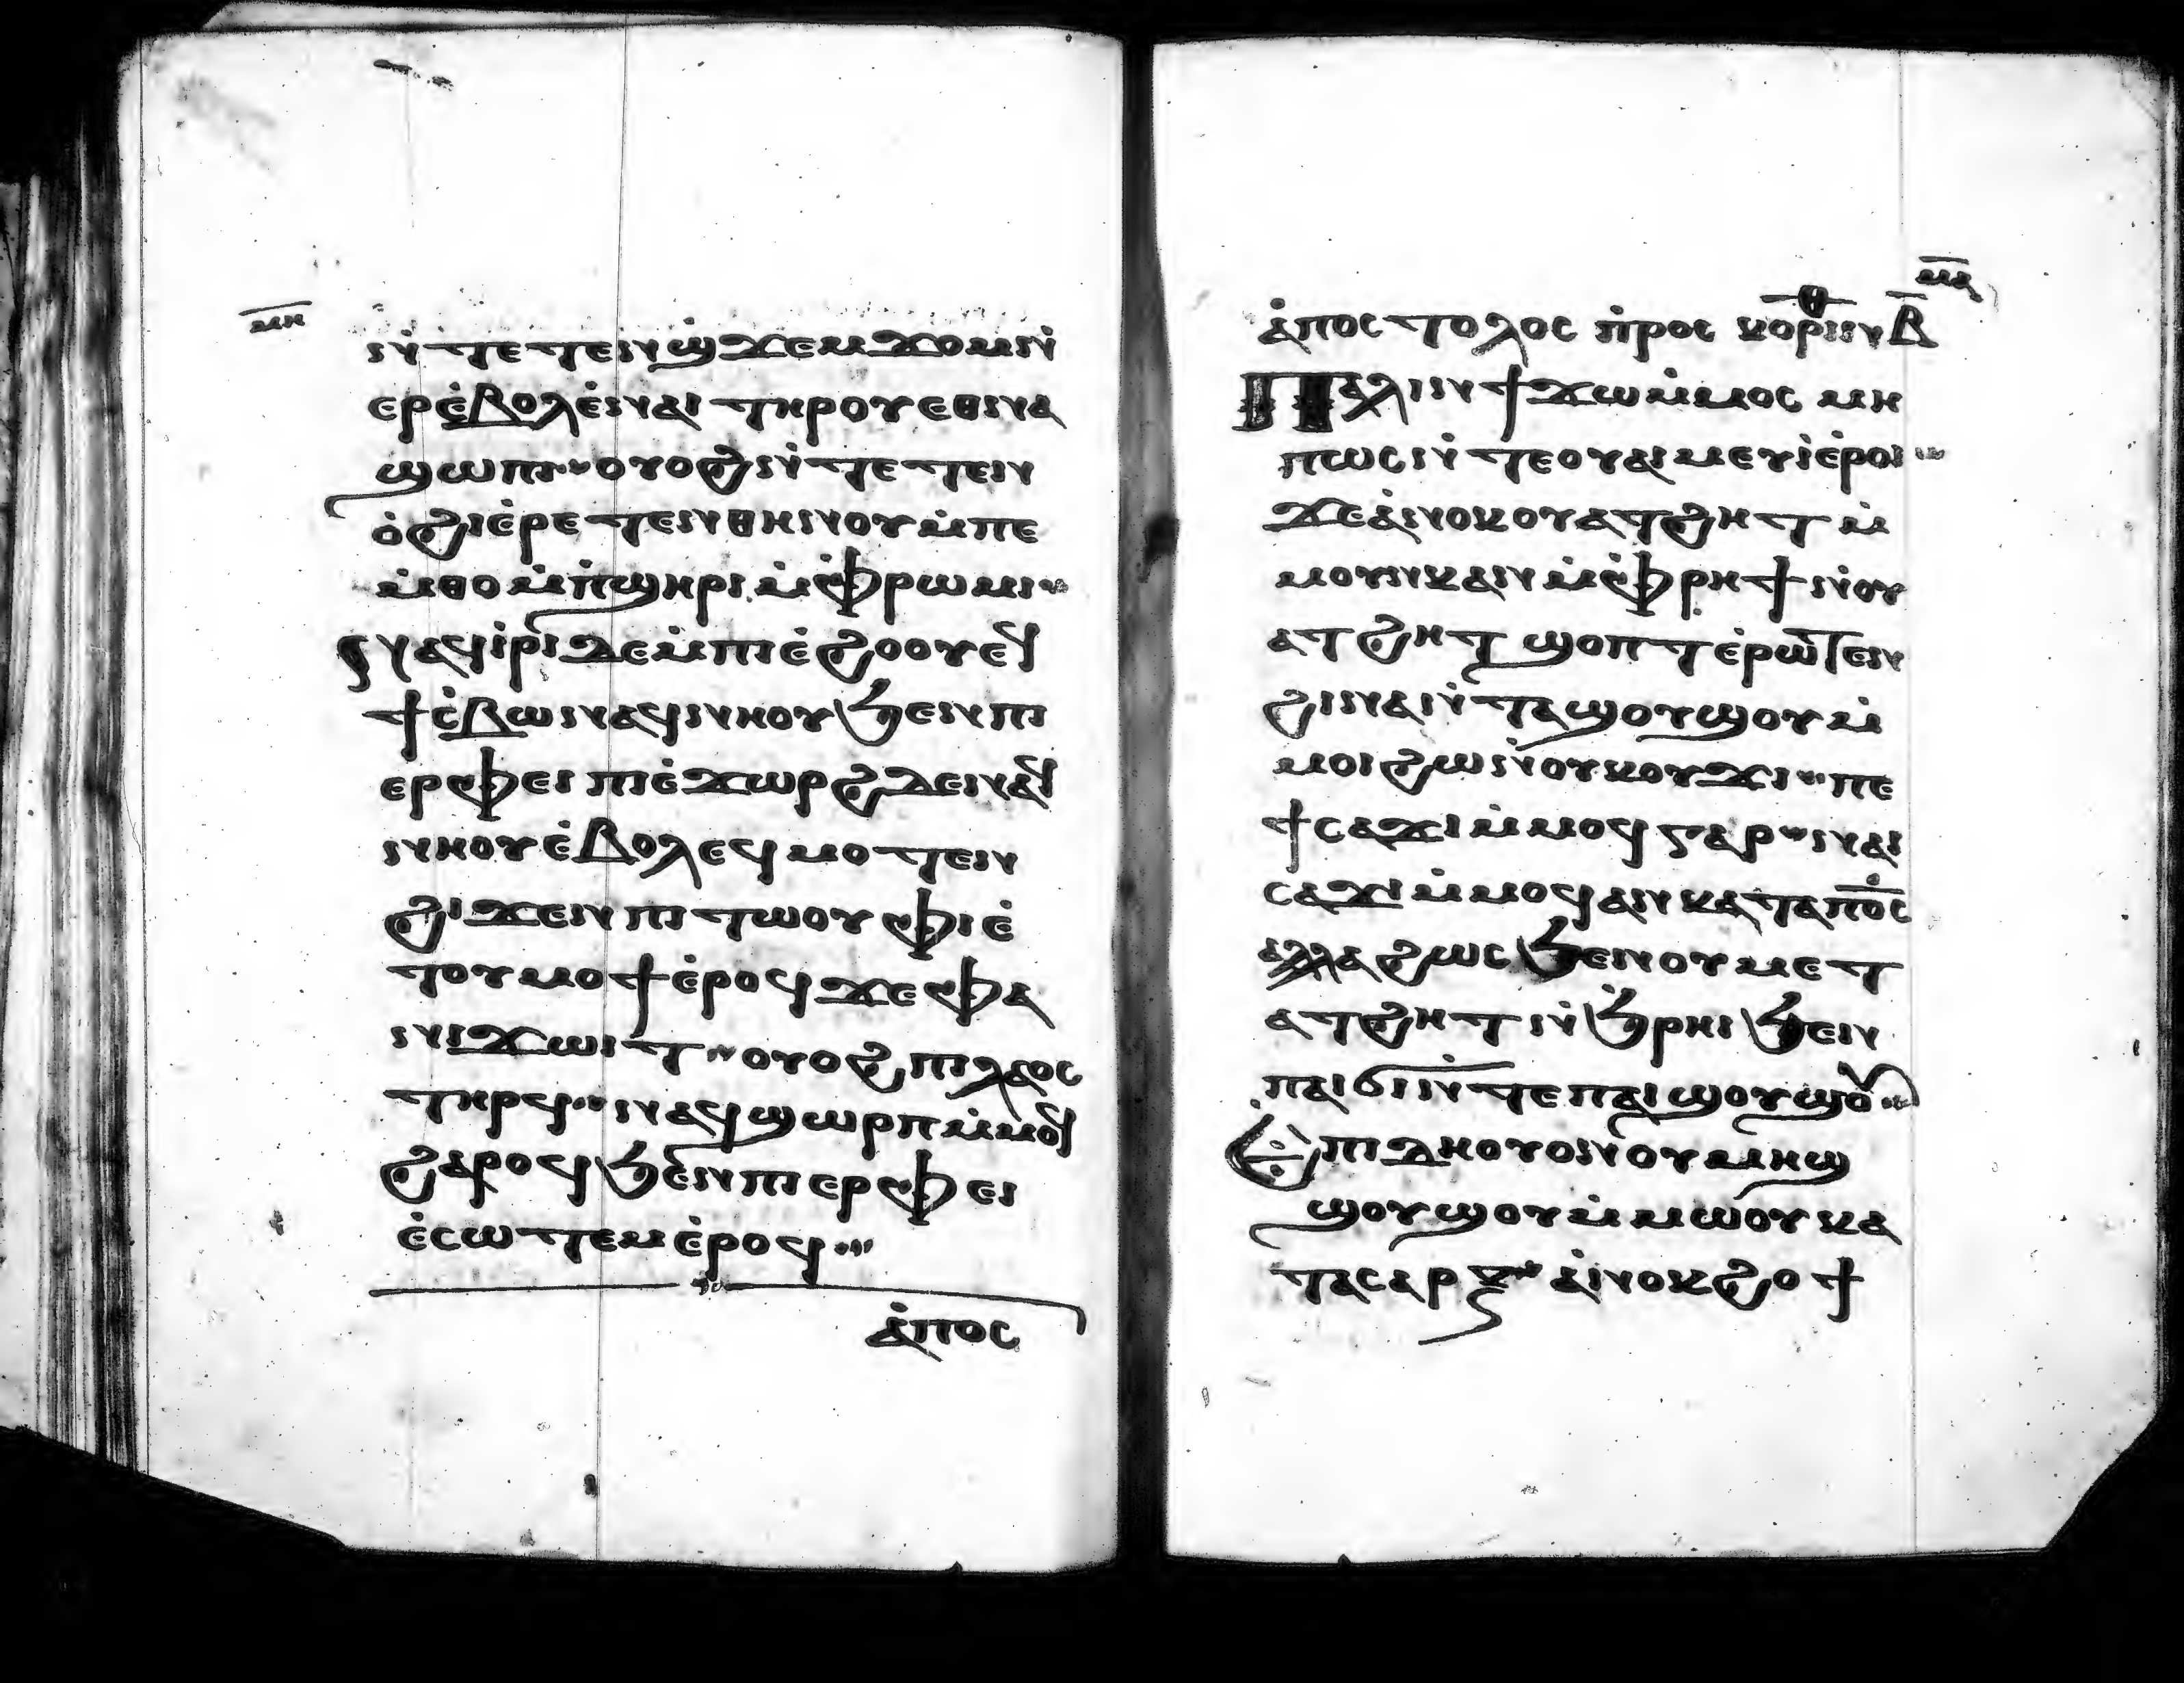 ⲙⲏ
ⲛ̇ⲧⲉⲧⲉⲛϣϫⲉⲙϫⲟⲙⲛ̇
ⲉⲣⲉ̇ⲃⲟⲗⲉ̇ⲛⲁⲓ ⲧⲏⲣⲟⲩ ⲉⲑⲛⲁ
ϣⲱⲡⲓ ⲟⲩⲟϩ ⲛ̇ⲧⲉⲧⲉⲛ
ⲟ̇ϩⲓ ⲉ̇ⲣⲉⲧⲉⲛⲑⲏⲛⲟⲩ ⲙ̇ⲡⲉ
ⲙ̇ⲑⲟ ⲙ̇ⲡ̇ϣⲏⲣⲓ ⲙ̇ⲫ̇ⲣⲱⲙⲓ
ⲛⲁϥⲓ̇ⲣⲓ ⲇⲉ ⲙ̇ⲡⲓⲉ̇ϩⲟⲟⲩ ⲉϥ
ϯⲥ̇ⲃⲱ ⲛⲁϥⲛⲏⲟⲩ ϧⲉⲛ ⲡⲓ
ⲉⲣⲫⲉⲓ ⲡⲓⲉ̇ϫⲱⲣϩ ⲇⲉ ⲛⲁϥ
ⲛⲏⲟⲩ ⲉ̇ⲃⲟⲗ ⲉϥⲙⲟⲧⲉⲛ
ϩⲓϫⲉⲛ ⲡⲓⲧⲱⲟⲩ ⲫⲓⲉ̇
ⲧⲟⲩⲙⲟϯ ⲉ̇ⲣⲟϥ ϫⲉ ⲫⲁ
ⲛⲓϫⲱⲓⲧ ⲟⲩⲟϩ ⲡⲓⲗⲁⲟⲥ
ⲧⲏⲣϥ ⲛⲁϥϣⲱⲣⲡ ⲙ̇ⲙⲟϥ
ϩⲁⲣⲟϥ ϧⲉⲛ ⲡⲓⲉⲣⲫⲉⲓ
ⲉ̇ⲥⲱⲧⲉⲙ ⲉ̇ⲣⲟϥ
ⲁ̇ⲡⲟⲥ
ⲁ̇ⲡⲟⲥⲧⲟⲗⲟⲥ ⲡ̇ⲣⲟⲥ ⲕⲟⲣⲓⲛⲑ ⲃ̅
ⲡⲁⲗⲓⲛ ϯϫⲱ ⲙ̇ⲙⲟⲥ ⲙⲏ
ⲡⲱⲥ ⲛ̇ⲧⲉ ⲟⲩⲁⲓ ⲙⲉⲩⲓ̇ ⲉ̇ⲣⲟⲓ
ϫⲉ ⲁ̇ⲛⲟⲕ ⲟⲩⲁⲧϩⲏⲧ ⲙ̇
ⲙⲟⲩⲛⲕⲁⲛ ⲙ̇ⲫ̇ⲣⲏϯ ⲛ̇ⲟⲩ
ⲁⲧϩⲏⲧ ϣⲟⲡⲧ ⲉ̇ⲣⲱⲧⲉⲛ
ϩⲓⲛⲁ ⲛ̇ⲧⲁϣⲟⲩϣⲟⲩ ⲙ̇
ⲙⲟⲓ ϩⲱ ⲛ̇ⲟⲩⲕⲟⲩϫⲓ ⲡⲉ
ϯⲥⲁϫⲓ ⲙ̇ⲙⲟϥ ⲅⲁⲣ ⲛⲁⲓ
ⲥⲁϫⲓ ⲙ̇ⲙⲟϥ ⲁⲛ ⲕⲁⲧⲁ ⲡⲟ̅ⲥ
ⲁⲗⲗⲁ ϩⲱⲥ ϧⲉⲛ ⲟⲩⲙⲉⲧ
ⲁⲧϩⲏⲧ ⲛ̇ϧ̇ⲣⲏⲓ ϧⲉⲛ
ⲡⲁⲓϭⲓ ⲛ̇ⲧⲉ ⲡⲁⲓϣⲟⲩϣⲟⲩ
ⲉⲡⲓⲇⲏ ⲟⲩⲟⲛ ⲟⲩⲙⲏϣ
ϣⲟⲩϣⲟⲩ ⲙ̇ⲙⲱⲟⲩ ⲕⲁ
ⲧⲁ ⲥⲁⲣⲝ ⲁ̇ⲛⲟⲕ ϩⲟ ϯ